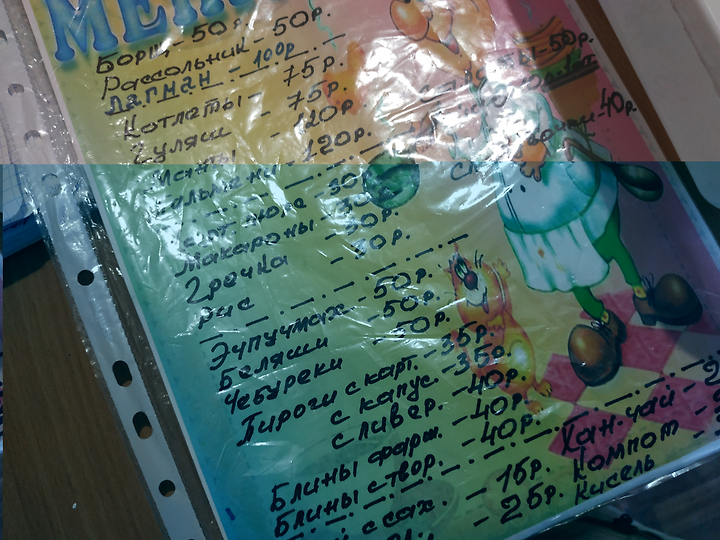 МЕНЮ
Борщ - 50р.
Рассольник - 50р.
Лагман - 100р
Котлеты - 75р.
Гуляш - 75р.
Манты - 120р.
Пельмени - 120р.
Карт. пюре - 30р
Макароны - 30р.
Гречка - 30р.
Рис - 30р.
Эчпучмак - 50р.
Беляши - 50р.
Чебуреки - 50р.
Пироги с карт. - 35р.
с капус. - 35р.
с ливер. - 40р.
Блины фарш. - 40р.
Блины створ. - 40р.
с сах. - 15р.
- 25р.
- 50р.
- 40р.
Хан. чай - 2
Компот -
Кисель